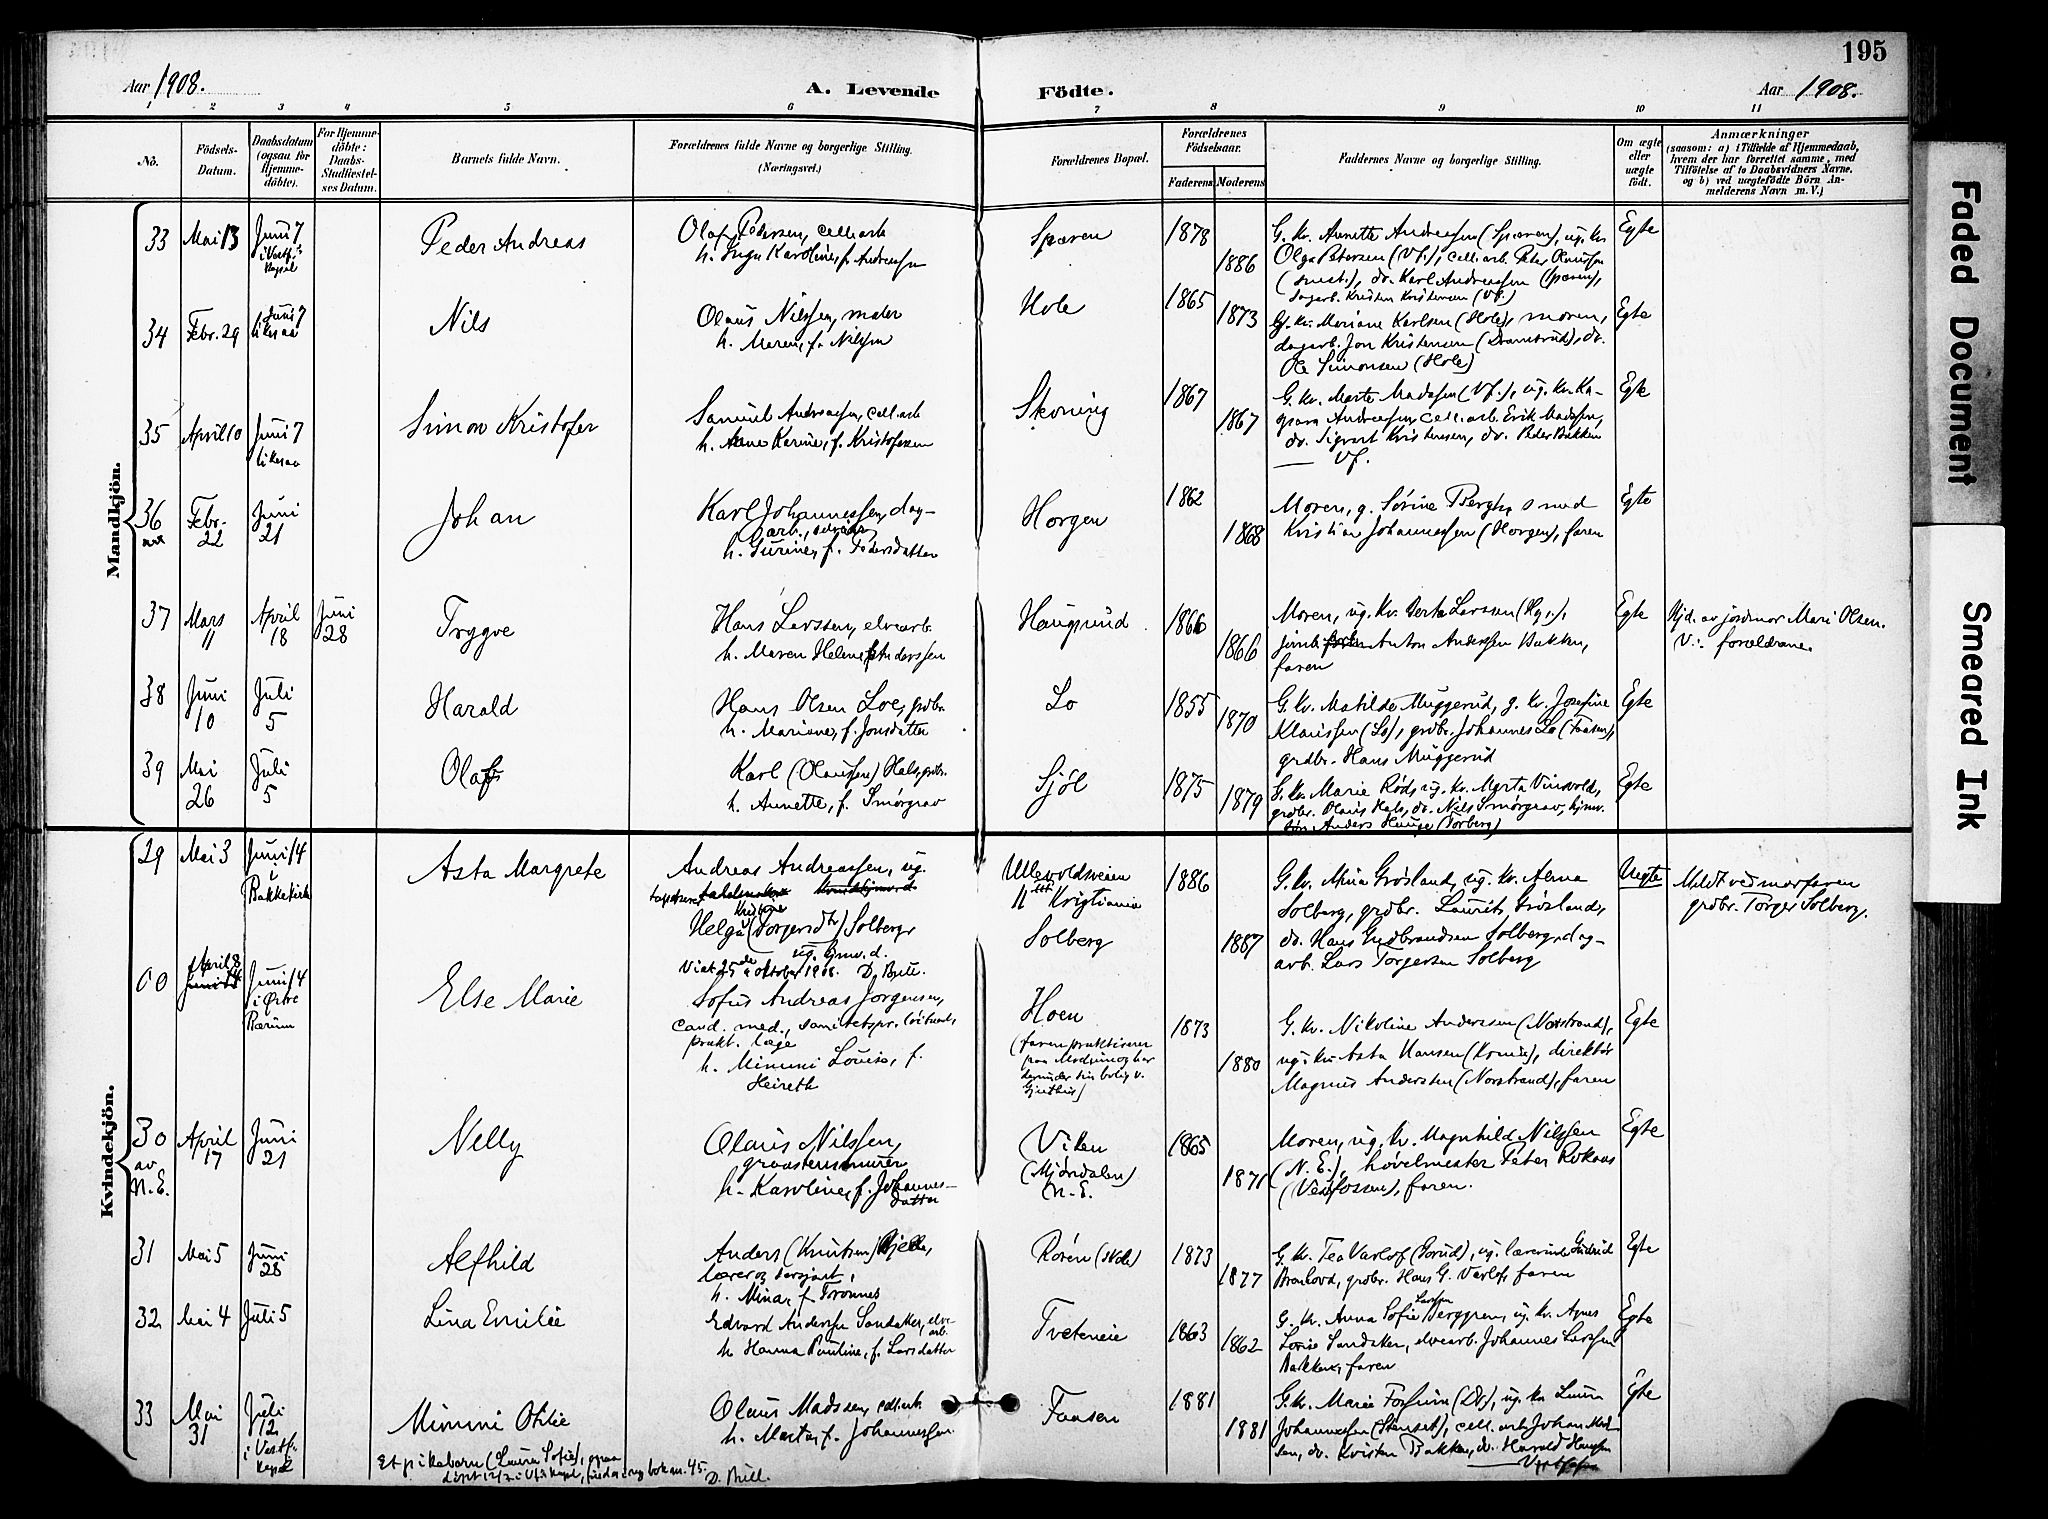 195
Aar 1908.
A. Levende Fødte.
Aar 1908.
1 2 3 4 5 6 7 8 9 10 11
No.
Fødsels-Datum.
Daabsdatum (ogsaa for Hjemme-døbte).
For Hjemme-døbte: Daabs-Stadfæstel-ses Datum.
Barnets fulde Navn.
Forældrenes fulde Navne og borgerlige Stilling.
(Næringsvei.)
Forældrenes Bopæl.
Forældrenes Fødselsaar.
Faderens
Moderens
Faddernes Navne og borgerlige Stilling.
Om ægte eller uægte født.
Anmærkninger
(saasom: a) i Tilfælde af Hjemmedaab, hvem der har forrettet samme, med Tilføielse af to Daabsvidners Navne, og b) ved uægtefødte Børn Anmelderens Navn m. V.)
Mandkjön.
33 Mai 13 Juni 7 i Vestf. kapel
Peder Andreas
Olaf Pedersen, celli.arb
h. Inga Karoline, f. Andreassen
Spæren
1878
1886
G. kv. Annette Andreassen (Spæren), ug. kv.
Olga Petersen (Vf.), celli.arb. Peter
do. Karl Andreassen (Spæren),
dagarb. Kristen Kristensen (Vf.)
Egte
34 Febr. 29 Juni 7 likesaa
Nils
Olaus Nilssen, maler
h. Maren, f. Nilssen
Hole
1865
1873
G. kv. Mariane Karlsen (Hole), moren,
dagarb. Jon Kristensen (Dramsrud), do.
Ole Simonsen (Hole)
Egte
35 April 10 Juni 7 likesaa
Simon Kristofer
Samuel Andreassen, cell.arb
h. Anne Karine, f. Kristofersen
Skoning
1867
1867
G. kv. Marte Madssen (Vf.), ug. kv. Ka-
Andreassen, cell.arb. Erik Madssen,
do. Sigvart Kristensen, do. Peder Bakken
Vf.
Egte
36 Febr. 22 Juni 21
Johan
Karl Johannessen, dag-
arb.,
h. Gurine, f. Pedersdatter
Horgen
1862
1868
Moren, g. Sørine Bergh, smed
Kristian Johannessen (Horgen), faren
Egte
37 Mars 11 April 18 Juni 28
Trygve
Hans Larssen, elvearb.
h. Maren Helene f. Anderssen
Haugrund
1866
1866
Moren, ug. kv. Berta Larssen (Hg.),
Anton Anderssen Bakken,
faren
Egte
Hjd. av jordmor Mari Olsen.
V.: forældrene.
38 Juni 10 Juli 5
Harald
Hans Olsen Loe, grdbr.
h. Mariane, f. Jonsdatter
Lo
1855
1870
G. kv. Matilde Muggerud, g. kv. Josefine
Klaussen (Lo), grdbr. Johannes Lo (Faasen),
grdbr. Hans Muggerud
Egte
39 Mai 26 Juli 5
Olaf
Karl (Olaussen) Hals, grdbr.
h. Annette, f. Smørgrav
Sjøl
1875
1879
G. kv. Marie Rød, ug. kv. Marta Vinsvold,
grdbr. Olaus Hals, do. Nils Smørgrav, hjmv.
Anders Hauge (Torberg)
Egte
Kvindekjön.
29 Mai 3 Juni 14 i Bakkekirke
Asta Margrete
Andreas Andreassen, ug.
Kristine
Helga (Torgersdtr) Solberg,
ug. hjmv. d.
Viet 25de oktober 1908. D. Bull.
Ullevoldsveien
11 Kristiania
Solberg
1886
1887
G. kv. Mina Grøsland, ug. kv. Anna
Solberg, grdbr. Laurits Grøsland,
do. Hans Gudbrandsen Solberg, dag-
arb. Lars Torgersen Solberg
Uegte
Meldt ved morfaren
grdbr. Torger Solberg.
00 April 8 Juni 14 i Østre Bærum
Else Marie
Sofus Andreas Jørgensen,
cand. med., sanitetspr. løitnant,
prakt. læge
h. Mimmi Louise, f.
Heireth
Hoen
(faren praktiserer
paa Modum og har
derunder sin bolig v.
Gjethus)
1873
1880
G. kv. Nikoline Anderssen (Norstrand),
ug. kv. Asta Hansen (Komnæs), direktør
Magnus Anderssen (Norstrand), faren
Egte
30 av N.E. April 17 Juni 21
Nelly
Olaus Nilssen,
graastensmurer
h. Karoline, f. Johannes-
datter
Viken
(Mjøndalen)
(N.E.
1865
1871
Moren, ug. kv. Magnhild Nilssen
(N.E.), høvelmester Peter Rokaas
(Vestfossen), faren.
Egte
31 Mai 5 Juni 28
Alfhild
Anders (Knutsen) Bjelle,
lærer og sersjant,
h. Mina, f. Tronnes
Roren (Hole)
1873
1877
G. kv. Tea Varlof (Borud), ug. lærerinde Gudrid
Branhovd, grdbr. Hans G. Varlof, faren
Egte
32 Mai 4 Juli 5
Lina Emilie
Edvard Anderssen Sandaker, elve-
arb.
h. Hanna Pauline, f. Larsdatter
Tveteneie
1863
1862
G. kv. Anna Sofie Larssen Berggren, ug. kv. Agnes
Lovise Sandaker, elvearb. Johannes Larssen
Bakken, faren
Egte
33 Mai 31 Juli 12 i Vestf. kapel
Mimmi Otilie
Olaus Madssen, cell.arb
h. Marta, f. Johannessen
Faasen
1881
1881
G. kv. Marie Forsum (Df), ug. kv. Laura
Johannessen (Stenset), cell.arb Johan Mad-
sen, do. Kristen Bakken, do. Harald Hanssen
Vestfossen
Egte
Et pikebarn (Laura Sofie), ogsaa
døpt 12/7 i Vfs kapel, findes i ny bok nr. 45.
D. Bull.
Faded Document
Smeared Ink